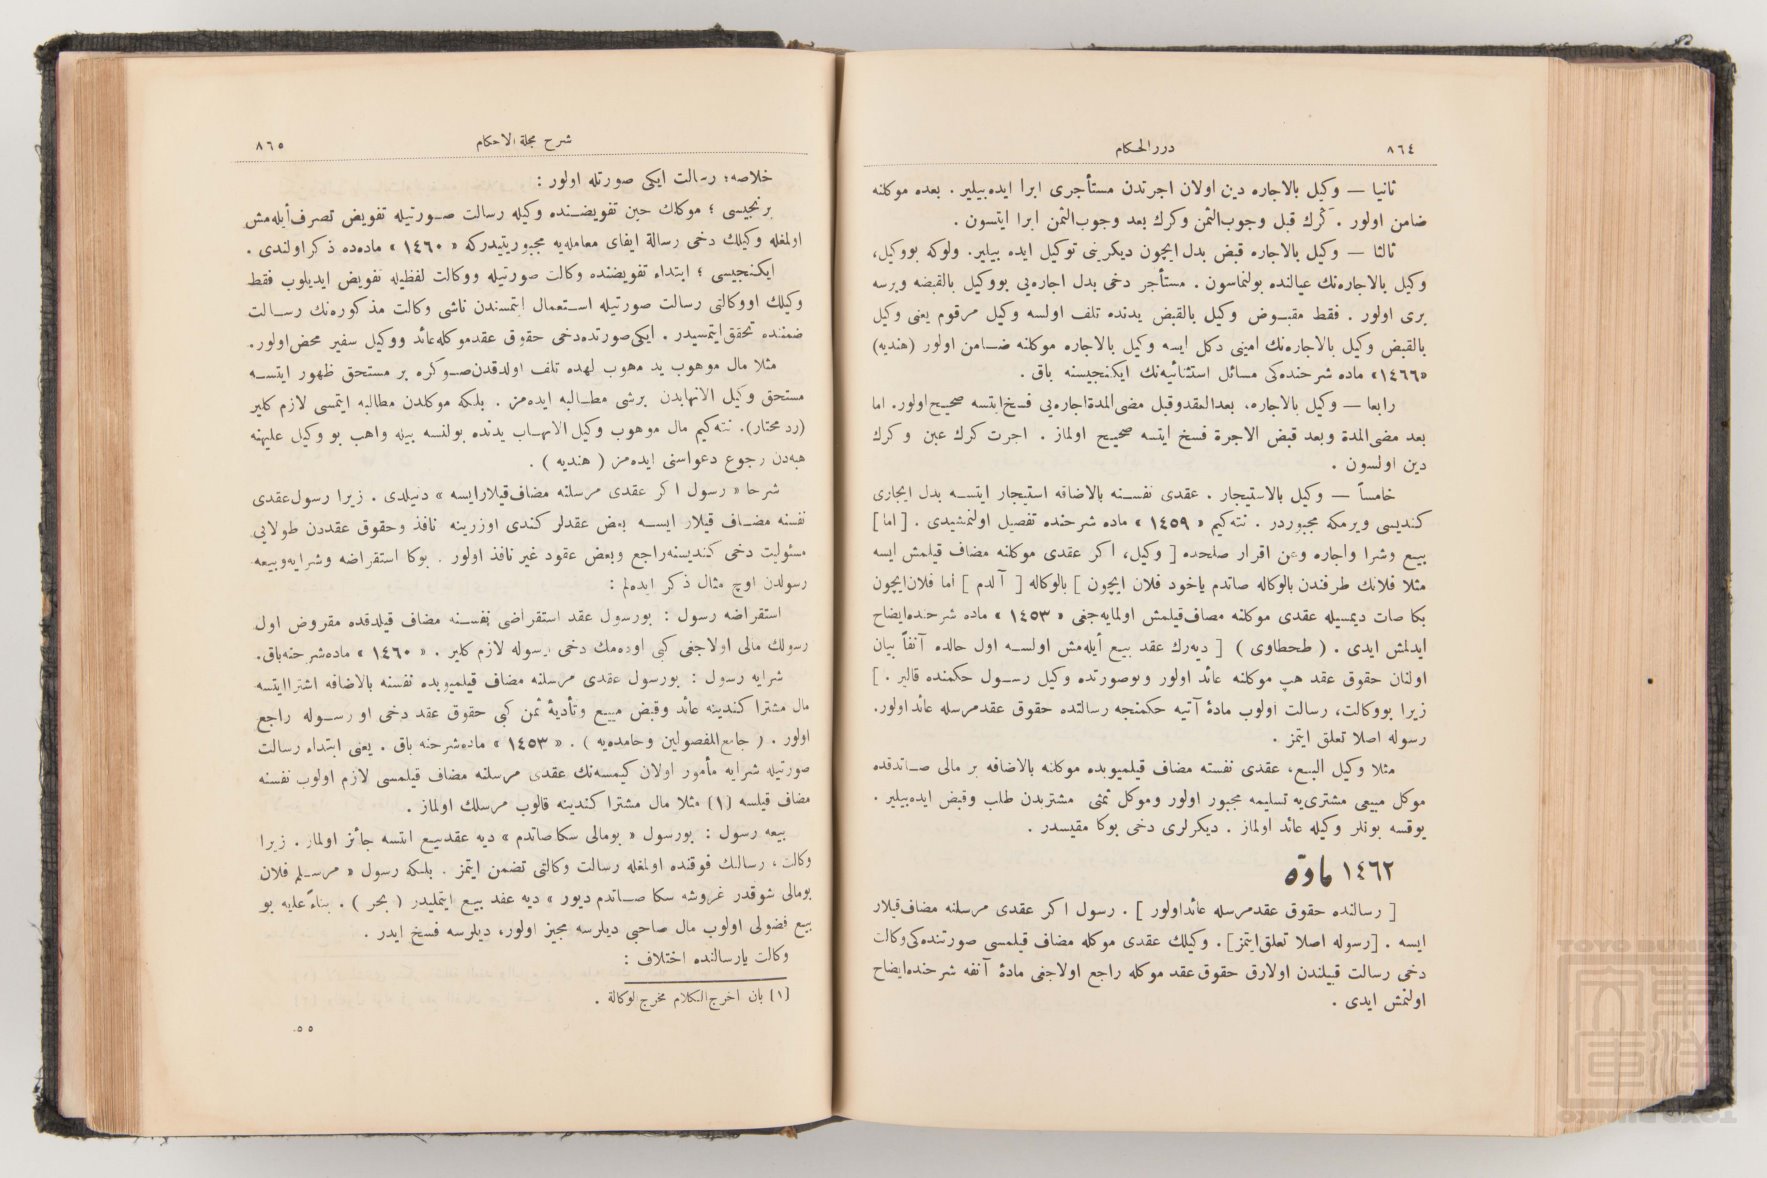 ٨٦٤
درر الحكام
ثانيا — وكيل بالاجاره دين اولان اجرتدن مستأجرى ابرا ايده‌بيلير . بعده موكلنه
ضامن اولور . كرك قبل وجوب‌الثمن وكرك بعد وجوب‌الثمن ابرا ايتسون .
ثالثا — وكيل بالاجاره قبض بدل ايچون ديكرينى توكيل ايده بيلير. ولوكه بووكيل،
وكيل بالاجاره‌نك عيالنده بولنماسون . مستأجر دخى بدل اجاره‌يى بووكيل بالقبضه ويرسه
برى اولور . فقط مقبوض وكيل بالقبض يدنده تلف اولسه وكيل مرقوم يعنى وكيل
بالقبض وكيل بالاجاره‌نك امينى دكل ايسه وكيل بالاجاره موكلنه ضامن اولور (هنديه)
«١٤٦٦» ماده شرحنده‌كى مسائل استثنائيه‌نك ايكنجيسنه باق .
رابعا — وكيل بالاجاره، بعدالعقدوقبل مضى‌المدة‌اجاره‌يى فسخ‌ايتسه صحيح‌اولور. اما
بعد مضى‌المدة وبعد قبض الاجرة فسخ ايتسه صحيح اولماز . اجرت كرك عين وكرك
دين اولسون .
خامساً — وكيل بالاستيجار . عقدى نفسنه بالاضافه استيجار ايتسه بدل ايجارى
كنديسى ويرمكه مجبوردر . نته‌كيم « ١٤٥٩ » ماده شرحنده تفصيل اولنمشيدى . [ اما ]
بيع وشرا واجاره وعن اقرار صلحده [ وكيل، اكر عقدى موكلنه مضاف قيلمش ايسه
مثلا فلانك طرفندن بالوكاله صاتدم ياخود فلان ايچون ] بالوكاله [ آلدم ] اما فلان‌ايچون
بكا صات ديمسيله عقدى موكلنه مضاف‌قيلمش اولمايه‌جغى « ١٤٥٣ » ماده شرحنده‌ايضاح
ايدلمش ايدى . ( طحطاوى ) [ ديه‌رك عقد بيع ايله‌مش اولسه اول حالده آنفاً بيان
اولنان حقوق عقد هپ موكلنه عائد اولور وبوصورتده وكيل رسول حكمنده قالير . ]
زيرا بووكالت، رسالت اولوب مادهٔ آتيه حكمنجه رسالتده حقوق عقدمرسله عائداولور.
رسوله اصلا تعلق ايتمز .
مثلا وكيل البيع، عقدى نفسنه مضاف قيلميوبده موكلنه بالاضافه بر مالى صاتدقده
موكل مبيعى مشترى‌يه تسليمه مجبور اولور وموكل ثمنى مشتريدن طلب وقبض ايده‌بيلير .
يوقسه بونلر وكيله عائد اولماز . ديكرلرى دخى بوكا مقيسدر .
١٤٦٢ مادّه
[ رسالتده حقوق عقدمرسله عائداولور ] . رسول اكر عقدى مرسلنه مضاف‌قيلار
ايسه . [رسوله اصلا تعلق‌ايتمز] . وكيلك عقدى موكله مضاف قيلمسى صورتنده‌كى‌وكالت
دخى رسالت قبيلندن اولارق حقوق عقد موكله راجع اولاجغى مادهٔ آنفه شرحنده‌ايضاح
اولنمش ايدى .
شرح مجلة الاحكام
٨٦٥
خلاصه؛ رسالت ايكى صورتله اولور :
برنجيسى ؛ موكلك حين تفويضنده وكيله رسالت صورتيله تفويض تصرف‌أيله‌مش
اولمغله وكيلك دخى رسالة ايفاى معامله‌يه مجبوريتيدركه « ١٤٦٠ » ماده‌ده ذكراولندى .
ايكنجيسى ؛ ابتداء تفويضنده وكالت صورتيله ووكالت لفظيله تفويض ايديلوب فقط
وكيلك اووكالتى رسالت صورتيله استعمال ايتمسندن ناشى وكالت مذكوره‌نك رسالت
ضمننده تحقق‌ايتمسيدر . ايكى‌صورتده‌دخى حقوق عقدموكله‌عائد ووكيل سفير محض‌اولور.
مثلا مال موهوب يد موهوب لهده تلف اولدقدن‌صوكره بر مستحق ظهور ايتسه
مستحق وكيل الاتهابدن برشى مطالبه ايده‌مز . بلكه موكلدن مطالبه ايتمسى لازم كلير
(رد محتار). نته‌كيم مال موهوب وكيل الاتهاب يدنده بولنسه بيله واهب بو وكيل عليهنه
هبه‌دن رجوع دعواسنى ايده‌مز ( هنديه ) .
شرحا « رسول اكر عقدى مرسلنه مضاف‌قيلارايسه » دنيلدى . زيرا رسول‌عقدى
نفسنه مضاف قيلار ايسه بعض عقدلر كندى اوزرينه نافذ وحقوق عقددن طولايى
مسئوليت دخى كنديسنه‌راجع وبعض عقود غير نافذ اولور . بوكا استقراضه وشرايه‌وبيعه
رسولدن اوچ مثال ذكر ايده‌لم :
استقراضه رسول : بورسول عقد استقراضى نفسنه مضاف قيلدقده مقروض اول
رسولك مالى اولاجغى كبى اوده‌مك دخى رسوله لازم كلير . « ١٤٦٠ » ماده‌شرحنه‌باق.
شرايه رسول : بورسول عقدى مرسلنه مضاف قيلميوبده نفسنه بالاضافه اشتراايتسه
مال مشترا كندينه عائد وقبض مبيع وتأديهٔ ثمن كبى حقوق عقد دخى او رسوله راجع
اولور . ( جامع‌الفصولين وحامديه ) . « ١٤٥٣ » ماده‌شرحنه باق . يعنى ابتداء رسالت
صورتيله شرايه مأمور اولان كيمسه‌نك عقدى مرسلنه مضاف قيلمسى لازم اولوب نفسنه
مضاف قيلسه (١) مثلا مال مشترا كندينه قالوب مرسلك اولماز .
بيعه رسول : بورسول « بومالى سكا صاتدم » ديه عقدبيع ايتسه جائز اولماز . زيرا
وكالت ، رسالتك فوقنده اولمغله رسالت وكالتى تضمن ايتمز . بلكه رسول « مرسلم فلان
بومالى شوقدر غروشه سكا صاتدم ديور » ديه عقد بيع ايتمليدر ( بحر ) . بناءً عليه بو
بيع فضولى اولوب مال صاحبى ديلرسه مجيز اولور، ديلرسه فسخ ايدر .
وكالت يارسالتده اختلاف :
(١) بان اخرج‌الكلام مخرج‌لوكالة .
٥٥